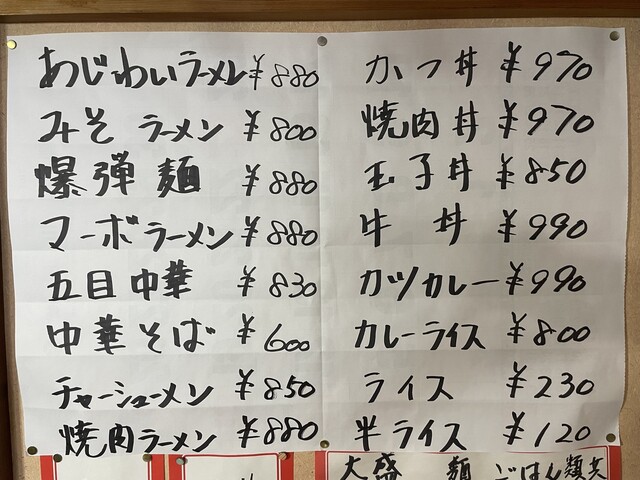 あじわいラーメン ¥880
みそ ラーメン ¥800
爆弾麺 ¥880
マーボラーメン ¥880
五目中華 ¥830
中華そば ¥600
チャーシューメン ¥850
焼肉ラーメン ¥880
かつ丼 ¥970
焼肉丼 ¥970
玉子丼 ¥850
牛丼 ¥990
カツカレー ¥990
カレーライス ¥800
ライス ¥230
半ライス ¥120
大盛 麺 ごはん類共